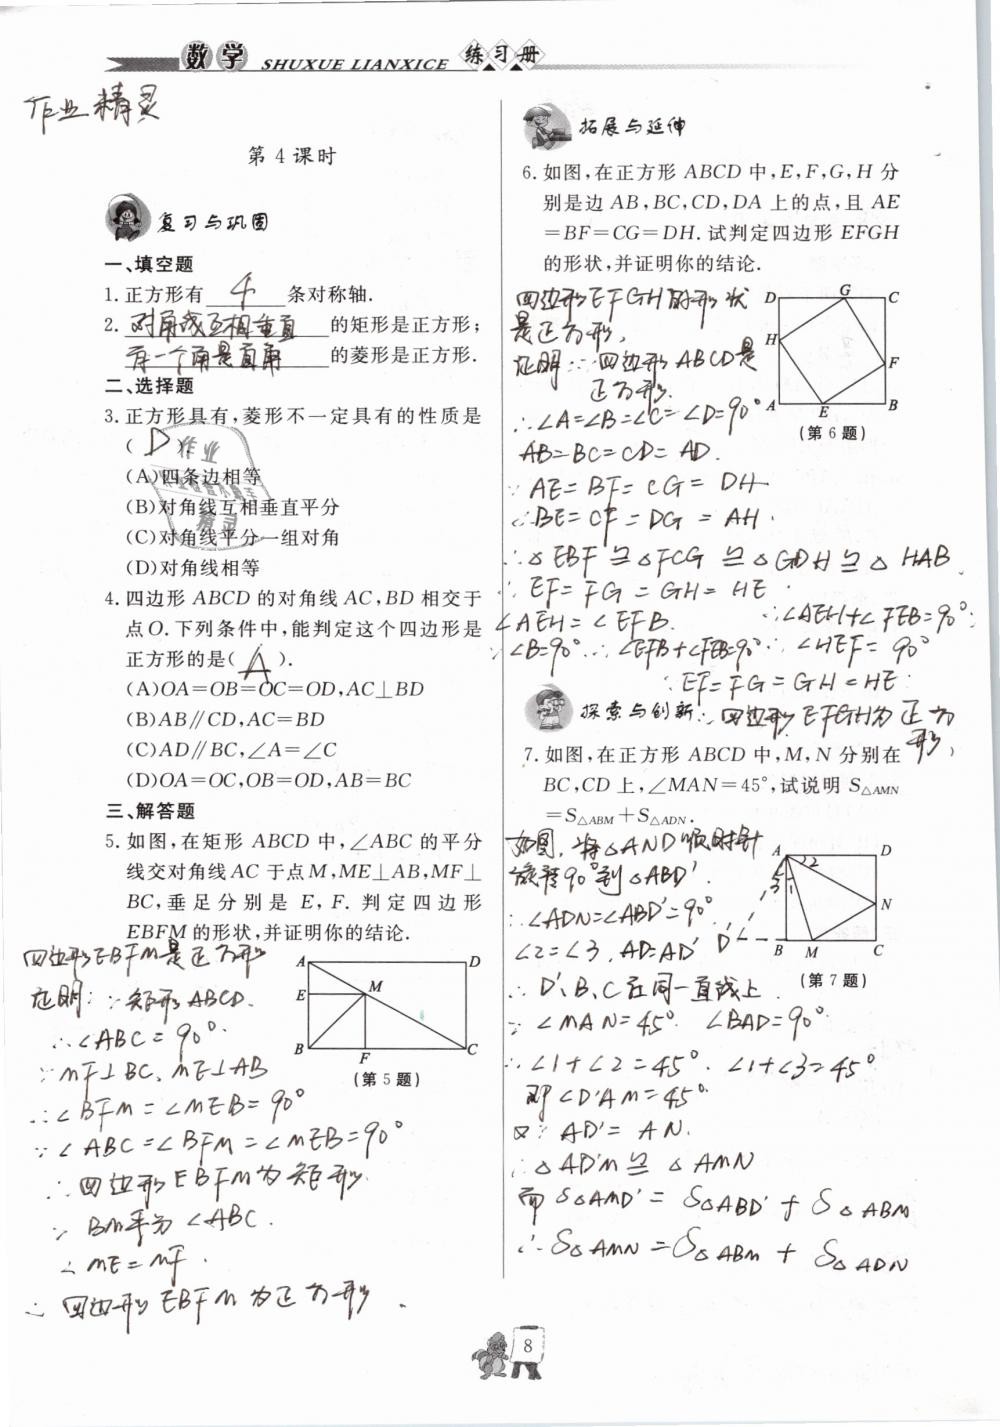 数学 SHUXUE LIANXICE 练习册
作业精灵
第 4 课时
复习与巩固
一、填空题
1. 正方形有 4 条对称轴.
2. 对角线互相垂直 的矩形是正方形;
有一个角是直角 的菱形是正方形.
二、选择题
3. 正方形具有,菱形不一定具有的性质是
( D ).
(A)四条边相等
(B)对角线互相垂直平分
(C)对角线平分一组对角
(D)对角线相等
4. 四边形 ABCD 的对角线 AC,BD 相交于
点O.下列条件中,能判定这个四边形是
正方形的是( A ).
(A)OA=OB=OC=OD,AC⊥BD
(B)AB∥CD,AC=BD
(C)AD∥BC,∠A=∠C
(D)OA=OC,OB=OD,AB=BC
三、解答题
5. 如图,在矩形 ABCD 中,∠ABC 的平分
线交对角线 AC 于点 M,ME⊥AB,MF⊥
BC,垂足分别是 E,F. 判定四边形
EBFM 的形状,并证明你的结论.
四边形EBFM是正方形
证明:∵矩形ABCD.
∴∠ABC=90°.
∵MF⊥BC、ME⊥AB
∴∠BFM=∠MEB=90°
∵∠ABC=∠BFM=∠MEB=90°
∴四边形EBFM为矩形.
∵BM平分∠ABC.
∴ME=MF.
∴四边形EBFM为正方形.
A D
E M
B F C
(第 5 题)
拓展与延伸
6. 如图,在正方形 ABCD 中,E,F,G,H 分
别是边 AB,BC,CD,DA 上的点,且 AE
=BF=CG=DH.试判定四边形 EFGH
的形状,并证明你的结论.
四边形EFGH的形状
是正方形,
证明:∵四边形ABCD是
正方形.
∴∠A=∠B=∠C=∠D=90°
AB=BC=CD=AD.
∵AE=BF=CG=DH
∴BE=CF=DG=AH.
∴△EBF≌△FCG≌△GDH≌△HAB
∴EF=FG=GH=HE.
∠AEH=∠EFB.
∵∠B=90°∴∠EFB+∠FEB=90°
∴∠AEH+∠FEB=90°
∴∠HEF=90°
∵EF=FG=GH=HE
∴四边形EFGH为正方形
D G C
H
F
A E B
(第 6 题)
探索与创新
7. 如图,在正方形 ABCD 中,M,N 分别在
BC,CD 上,∠MAN=45°,试说明 S△AMN
=S△ABM+S△ADN.
如图,将△AND顺时针
旋转90°到△ABD'.
∴∠ADN=∠ABD'=90°
∠2=∠3,AD=AD'
∴D'、B、C在同一直线上
∵∠MAN=45°.∠BAD=90°
∴∠1+∠2=45°.∠1+∠3=45°
即∠D'AM=45°
又∵AD'=AN.
∴△AD'M≌△AMN
而S△AMD'=S△ABD'+S△ABM
∴S△AMN=S△ABM+S△ADN
A D
2
3 1
N
D' B M C
(第 7 题)
8